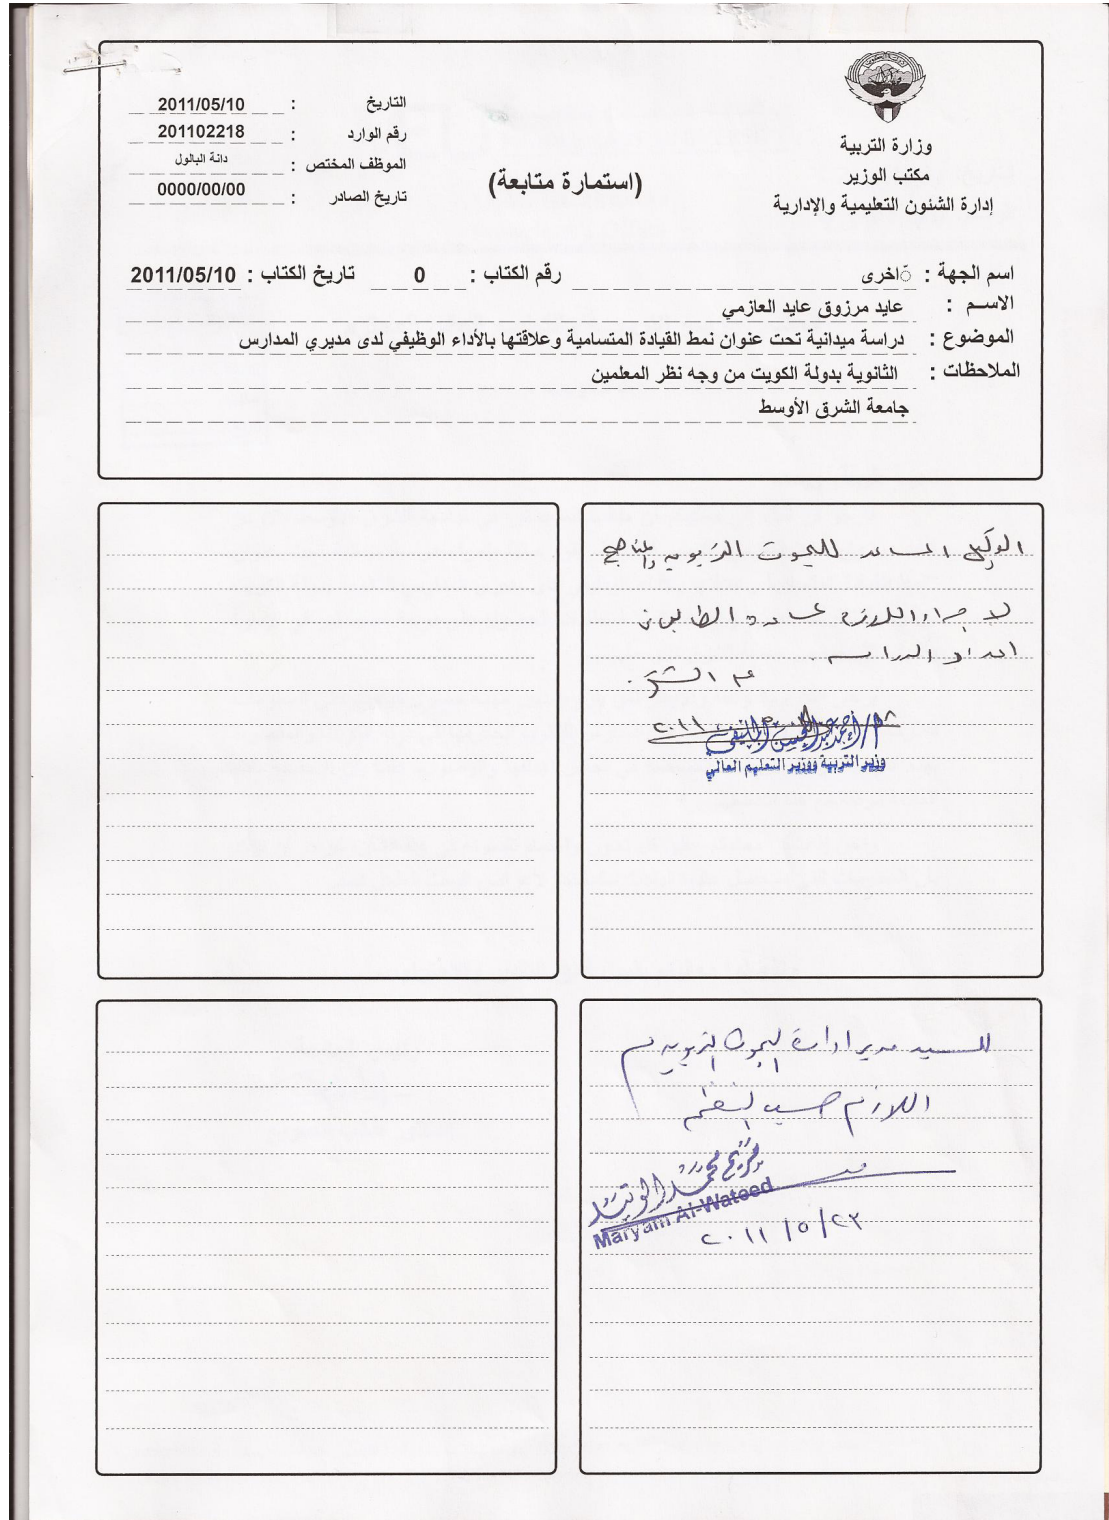 وزارة التربية
مكتب الوزير
إدارة الشئون التعليمية والإدارية
(استمارة متابعة)
التاريخ : 2011/05/10
رقم الوارد : 201102218
الموظف المختص : دانة البالول
تاريخ الصادر : 0000/00/00
اسم الجهة : ّاخرى رقم الكتاب : 0 تاريخ الكتاب : 2011/05/10
الاســم : عايد مرزوق عايد العازمي
الموضوع : دراسة ميدانية تحت عنوان نمط القيادة المتسامية وعلاقتها بالأداء الوظيفي لدى مديري المدارس
الملاحظات : الثانوية بدولة الكويت من وجه نظر المعلمين
جامعة الشرق الأوسط
الوكيل المساعد للبحوث التربوية والمناهج
لاجراء اللازم
اعداد الدراسة
مع الشكر
٢٠١١
وزير التربية ووزير التعليم العالي
للسيد مدير ادارة البحوث التربوية
اللازم حسب النظم
مريم محمد الوتيد
Maryam Al-Wateed
٢٠١١/٥/٢٣